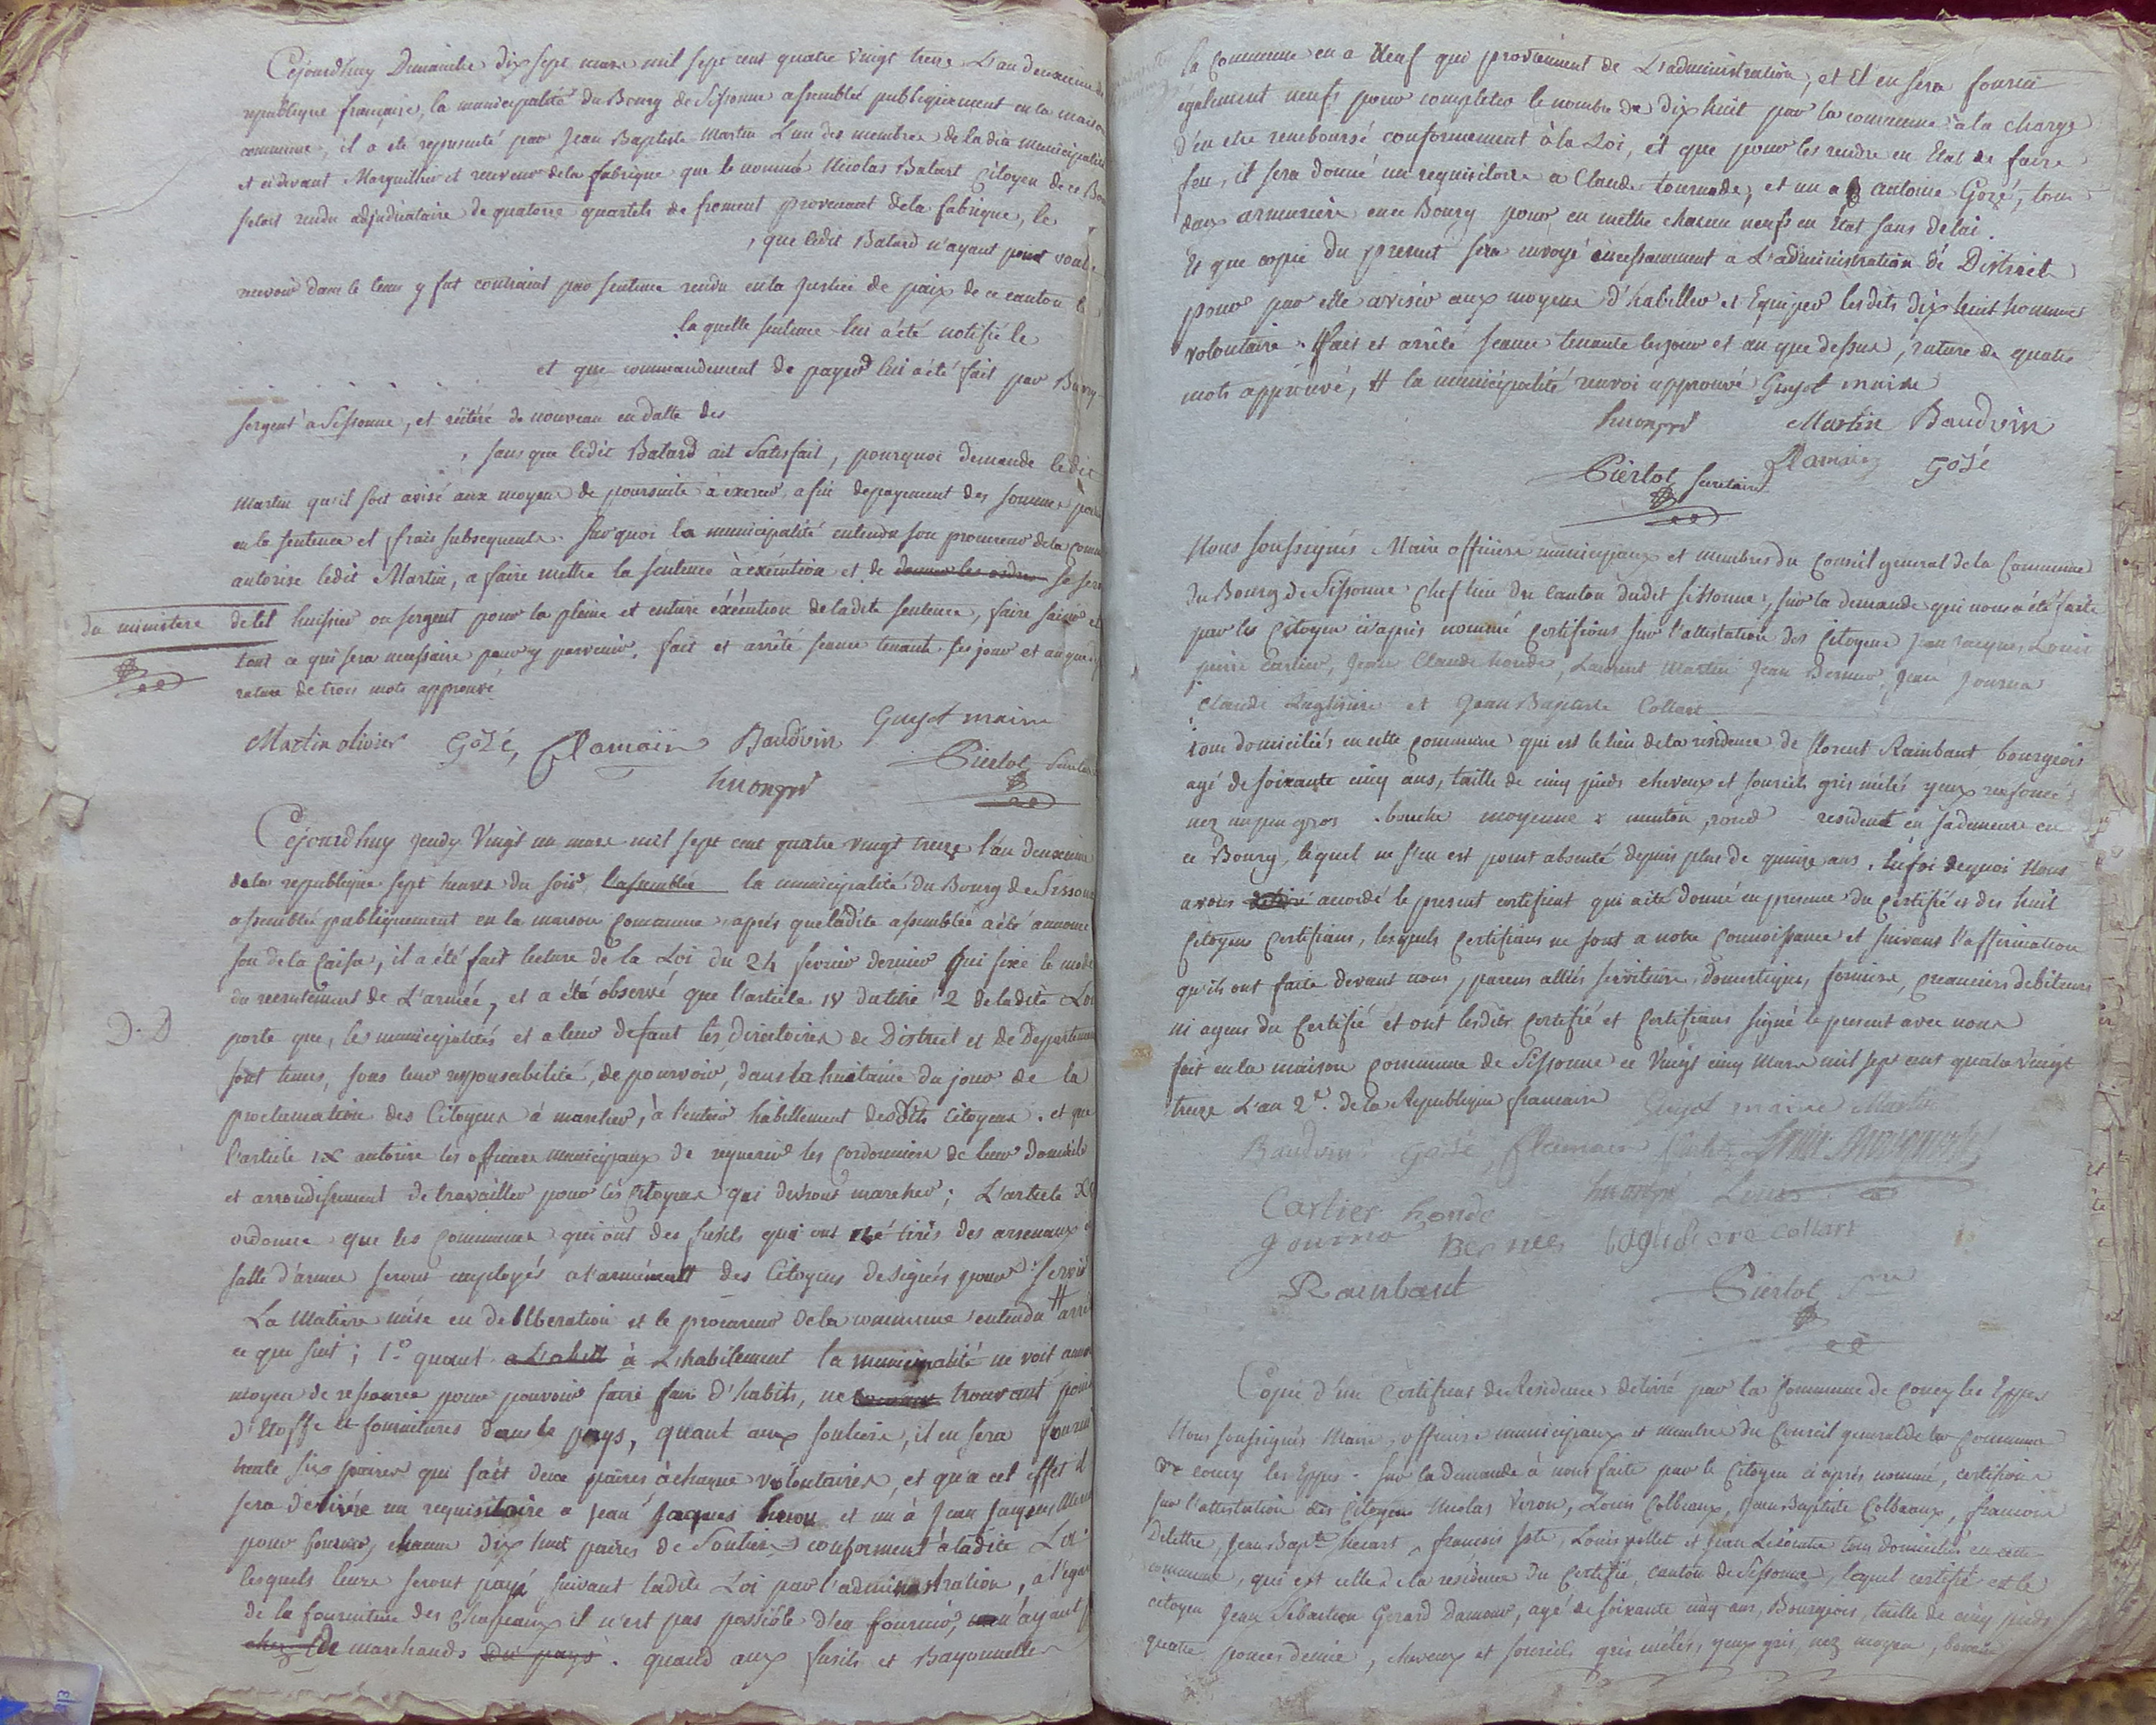 Cejourdhuy Dimanche dix sept mars mil sept cent quatre vingt treize L'an deuxieme de la
republique française, la municipalité du Bourg de Sissonne assemblée publiquement en la maison
commune, il a été représenté par Jean Baptiste Martin L'un des membres de la dite municipalité
et cidevant Marguillier et receveur de la fabrique que le nommé Nicolas Batart Citoyen de ce Bourg
setait rendu adjudicataire de quatorze quartels de froment provenant dela fabrique, le
, que ledit Batard n'ayant point voulu
recevoir dans le tems y fut contraint par sentence rendu en la Justice de paix de ce canton le
laquelle sentence lui a été notifié le
et que commandement de payer lui a été fait par
sergent a Sissonne, et réitéré de nouveau en datte des
, sans que ledit Batard ait satisfait, pourquoi demande ledit
Martin qu'il soit avisé aux moyens de poursuite à exercer, afin de payement des sommes
en la sentence et frais subsequents. Sur quoi la municipalité entendu son procureur de la commune
autorise ledit Martin, a faire mettre la sentence à exécution et de donner les ordres se servir
du ministere
de tel huissier ou sergent pour la pleine et entiere éxécution de ladite sentence, faire saisir et
tout ce qui sera necessaire pour y parvenir. fait et arrêté seance tenante les jour et an que
rature de trois mots approuvé
Martin olivier Gozé, Flamain Baudvin Guyot maire
huongrd Piertot
Cejourdhuy jeudy Vingt un mars mil sept cent quatre vingt treize l'an deuxieme
de la republique sept heures du soir, l'assemblée la municipalité du Bourg de Sissonne
assemblée publiquement en la maison commune après que ladite assemblée a été annoncé
son de la caisse, il a été fait lecture de la Loi du 24 fevrier dernier qui fixe le mode
du recrutement de L'armée, et a été observé que l'article 18 du titre 2 de ladite Loi
D. D
porte que, les municipalités et a leur defaut les directoires de District et de Departement
sont tenus, sous leur responsabilité, de pourvoir, dans la huitaine du jour de la
proclamation des Citoyens à marcher, à l'entier habillement desdits citoyens. et que
l'article IX autorise les officiers municipaux de requerir les cordonniers de leur domicile
et arrondissement de travailler pour les citoyens qui devront marcher; L'article
ordonne que les communes qui ont des fusils qui ont été tirés des arsenaux
salle d'armes seront employés a l'armement des Citoyens designés pour servir
La Matiere mise en deliberation et le procureur de la commune entendu # arrête
ce que suit; 1.o quant a L'abill à L'habilement la municipalité ne voit aucun
moyen de ressource pour pouvoir faire faire d'habits, ne trouvant point
d'Etoffe et fournitures dans le pays, quant aux souliers, il en sera fourni
trente six paires qui fait deux paires à chaque volontaires, et qu'a cet effet il
sera delivré un requisitoire a jean Jacques huon et un à Jean Jacques
pour fournir, chacun dix huit paires de Souliers conforment à ladite Loi
lesquels leurs seront payé suivant ladite Loi par l'administration, a l'egard
de la fourniture des Chapeaux il n'est pas possible d'en fournir, n'ayant
chez de marchands du pays. quand aux fusils et Bayonnettes
la commune en a Neuf qui proviennent de L'administration, et Il en sera fourni
également neufs pour completer le nombre de dix huit par la commune a la charge
d'en etre remboursé conformement à la Loi, et que pour les rendre en Etat de faire
feu, il sera donné un requisitoire a Claude tournade, et un a Antoine Gozé, tous
deux armuriers en ce Bourg pour en mettre chacun neufs en Etat sans delai.
Et que copie du present sera envoyé incessamment à L'administration de District
pour par elle aviser aux moyens d'habiller et Equiper lesdits dix huit hommes
volontaire. Fait et arrêté seance tenante les jour et an que dessus, rature de quatre
mots approuvé, # la municipalité renvoi approuvé Guyot maire
huongrd Martin Baudvin
Piertot secretaire Flamain Gozé
Nous soussignés Maire officiers municipaux et membres du Conseil general de la Commune
du Bourg de Sissonne chef lieu du canton dudit Sissonne, sur la demande qui nous a été faite
par les Citoyen ci-après nommé Certifions sur l'attestation des Citoyens jean jacques, Louis
pierre cartier, Jean Claude honde, Laurent Martin Jean Bernier, Jean journa
Claude Laglisiere et Jean Baptiste Collart
tous domiciliés en cette commune qui est le lieu de la residence de florent Rainbaut bourgeois
agé de soixante cinq ans, taille de cinq pieds cheveux et sourcils gris mélés yeux enfoncés
nez un peu gros . bouche moyenne menton, rond resident en sa demeure en
ce Bourg, lequel ne s'en est point absenté depuis plus de quinze ans. En foi de quoi Nous
avons délivré accordé le present certificat qui a été donné en presence du certifié et des huit
Citoyens Certifians, lesquels Certifians ne sont a notre connoissance et suivant l'affirmation
qu'ils ont faite devant nous, parens alliés serviteurs, domestiques, fermiers, creanciers debiteurs
ni agens du Certifié et ont lesdits certifié et Certifians signé le present avec nous
fait en la maison commune de Sissonne ce Vingt cinq Mars mil sept cent quatre vingt
treize L'an 2e. de la Republique francaise Guyot maire Martin
Baudvin Gozé Flamain
Cartier honde huongrd Louis
journa Bernier laglisiere collart
Rainbaut Piertot Sre
Copie d'un Certificat de Residence delivré par la Commune de Coucy les Eppes
Nous soussignés Maire, officiers municipaux et membres du Conseil general de la Commune
de coucy les Eppes. sur la demande à nous faite par le Citoyen ci après nommé, certifions
sur l'attestation des Citoyens Nicolas Veron, Louis Colbeaux, Jean Baptiste Colbeaux, francois
Delettre, Jean Bapte hecart, francois , Louis pellet et Jean tous domiciliés en cette
commune, qui est celle de la residence du Certifié, canton de Sissonne, lequel certifié est le
citoyen Jean Sebastien Gerard Damour, agé de soixante cinq ans, Bourgeois, taille de cinq pieds
quatre pouces demie, cheveux et sourcils gris mélés, yeux gris, nez moyen, bouche